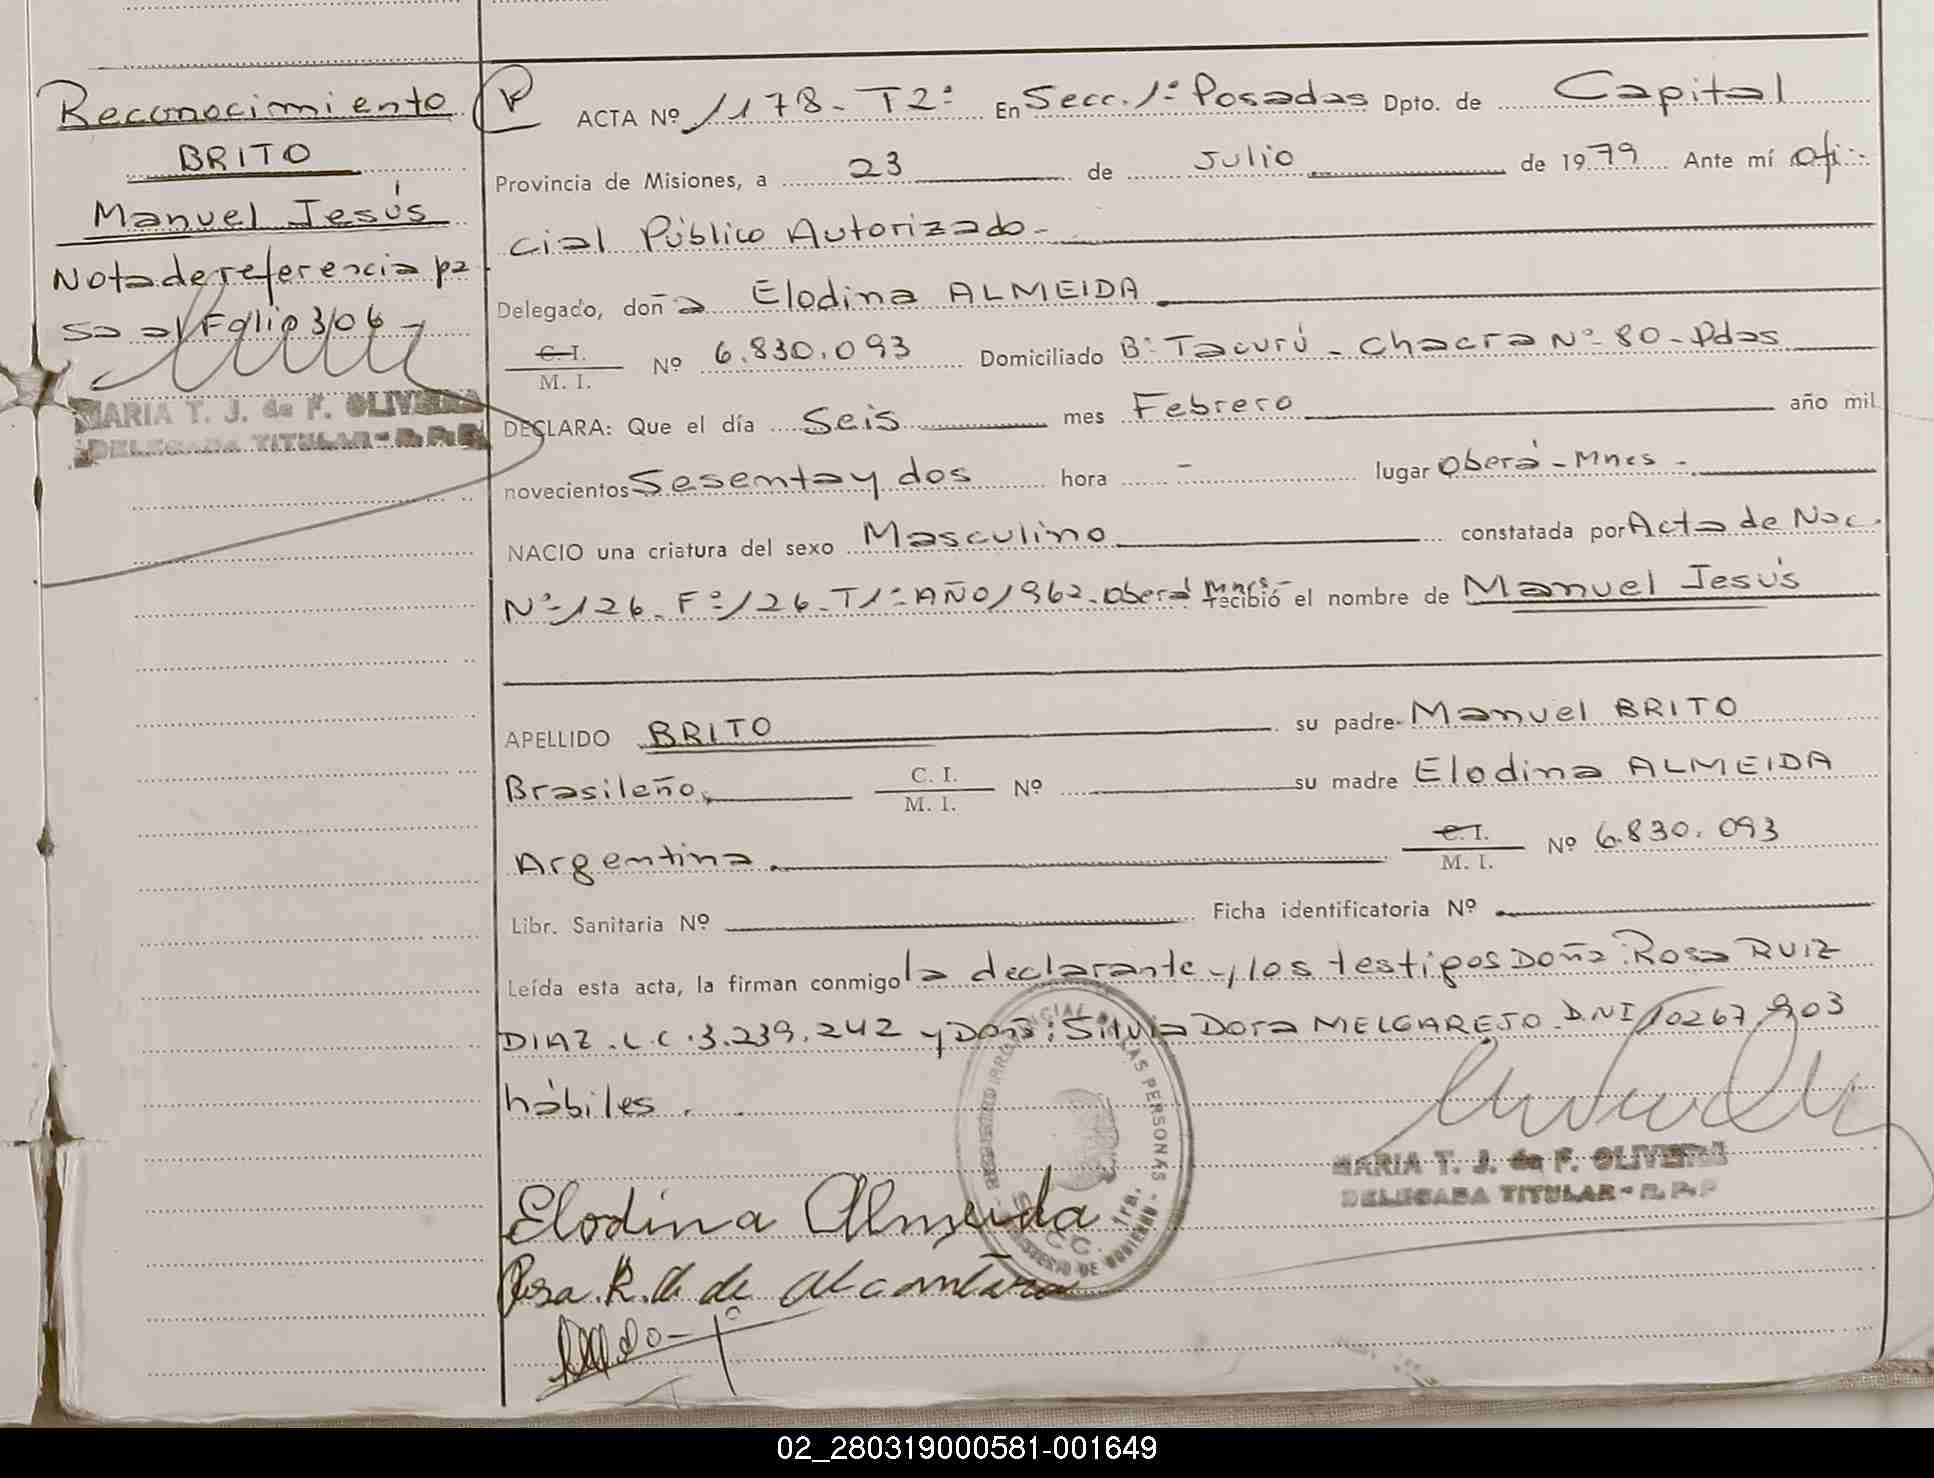 Reconocimiento
BRITO
Manuel Jesús
Nota de referencia pa
sa al Folio 306 -
MARIA T. J. de F. OLIVEIRA
DELEGADA TITULAR - R. P. P.
ACTA Nº 1178 - T2º En Secc. 1º Posadas Dpto. de Capital
Provincia de Misiones, a 23 de Julio de 1979 Ante mí Ofi-
cial Público Autorizado -
Delegado, doña Elodina ALMEIDA
C.I. / M. I. Nº 6.830.093 Domiciliado Bº Tacurú - Chacra Nº 80 - Pdas
DECLARA: Que el día Seis mes Febrero año mil
novecientos Sesenta y dos hora - lugar Oberá - Mnes -
NACIO una criatura del sexo Masculino constatada por Acta de Nac.
Nº 126 - Fº 126 - T1º - AÑO 1962 - Oberá Mnes - recibió el nombre de Manuel Jesús
APELLIDO BRITO su padre Manuel BRITO
Brasileño, C. I. / M. I. Nº su madre Elodina ALMEIDA
Argentina C.I. / M. I. Nº 6.830.093
Libr. Sanitaria Nº Ficha identificatoria Nº
Leída esta acta, la firman conmigo la declarante y los testigos Doña: Rosa RUIZ
DIAZ - L.C. 3.239.242 y Doña: Silvia Dora MELGAREJO - DNI 10267903
hábiles.
REGISTRO PROVINCIAL DE LAS PERSONAS - SECC. 1ra. - MINISTERIO DE GOBIERNO
MARIA T. J. de F. OLIVEIRA
DELEGADA TITULAR - R. P. P
Elodina Almeida
Rosa R. D. de Alcantara
02_280319000581-001649